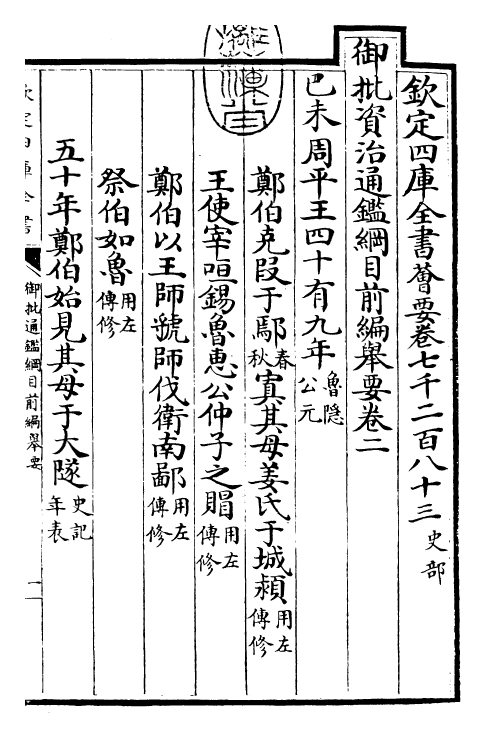 欽定四庫全書薈要卷七千二百八十三 史部
御批資治通鑑綱目前編舉要卷二
己未周平王四十有九年 魯隱公元
鄭伯克段于鄢 春秋 寘其母姜氏于城潁 用左傳修
王使宰咺錫魯惠公仲子之賵 用左傳修
鄭伯以王師虢師伐衛南鄙 用左傳修
祭伯如魯 用左傳修
五十年鄭伯始見其母于大隧 史記年表
欽定四庫全書
御批通鑑綱目前編舉要
一